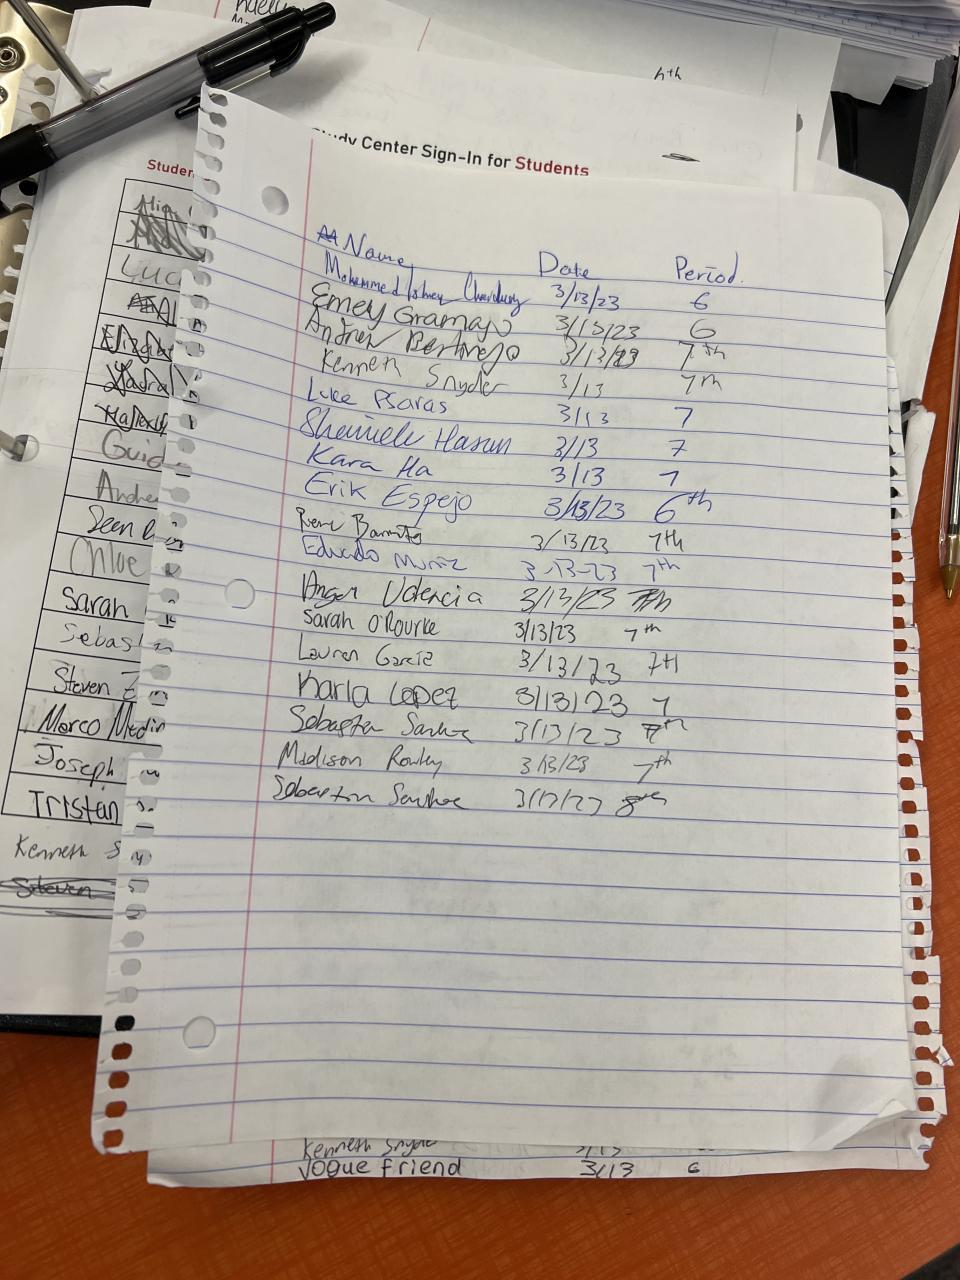 hth
Study Center Sign-In for Students
Studen
Name Date Period.
Mohammed 3/13/23 6
Emely Gramajo 3/13/23 6
Andrew Bermejo 3/13/23 7th
Kenneth Snyder 3/13 7th
Luke Psaras 3/13 7
Hasan 3/13 7
Kara Ha 3/13 7
Erik Espejo 3/13/23 6th
Rene 3/13/23 7th
Eduardo Muniz 3-13-23 7th
Angel Valencia 3/13/23 7th
Sarah O'Rourke 3/13/23 7th
Lauren Garcia 3/13/23 7th
Karla Lopez 3/13/23 7
Sebastian 3/13/23 7th
Madison Rowley 3/13/23 7th
Sebastian 3/13/23 8th
Luc
Guid
Andre
Sean
Chloe
Sarah
Sebas
Steven
Marco Medin
Joseph
Tristan
Kenneth S
Steven
Kenneth Snyde 3/13
Vogue friend 3/13 6